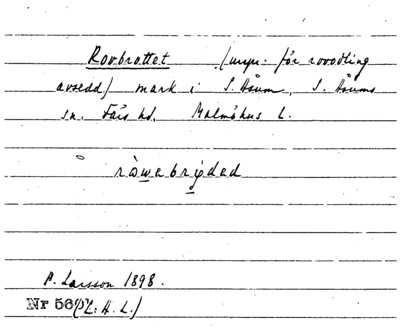 Rovbrottet (urspr. för rovodling
avsedd) mark i S. Åsum, S. Åsums
sn. Färs hd. Malmöhus L.
råwabrödəd
P. Larsson 1898.
Nr 56 (L. H. L.)